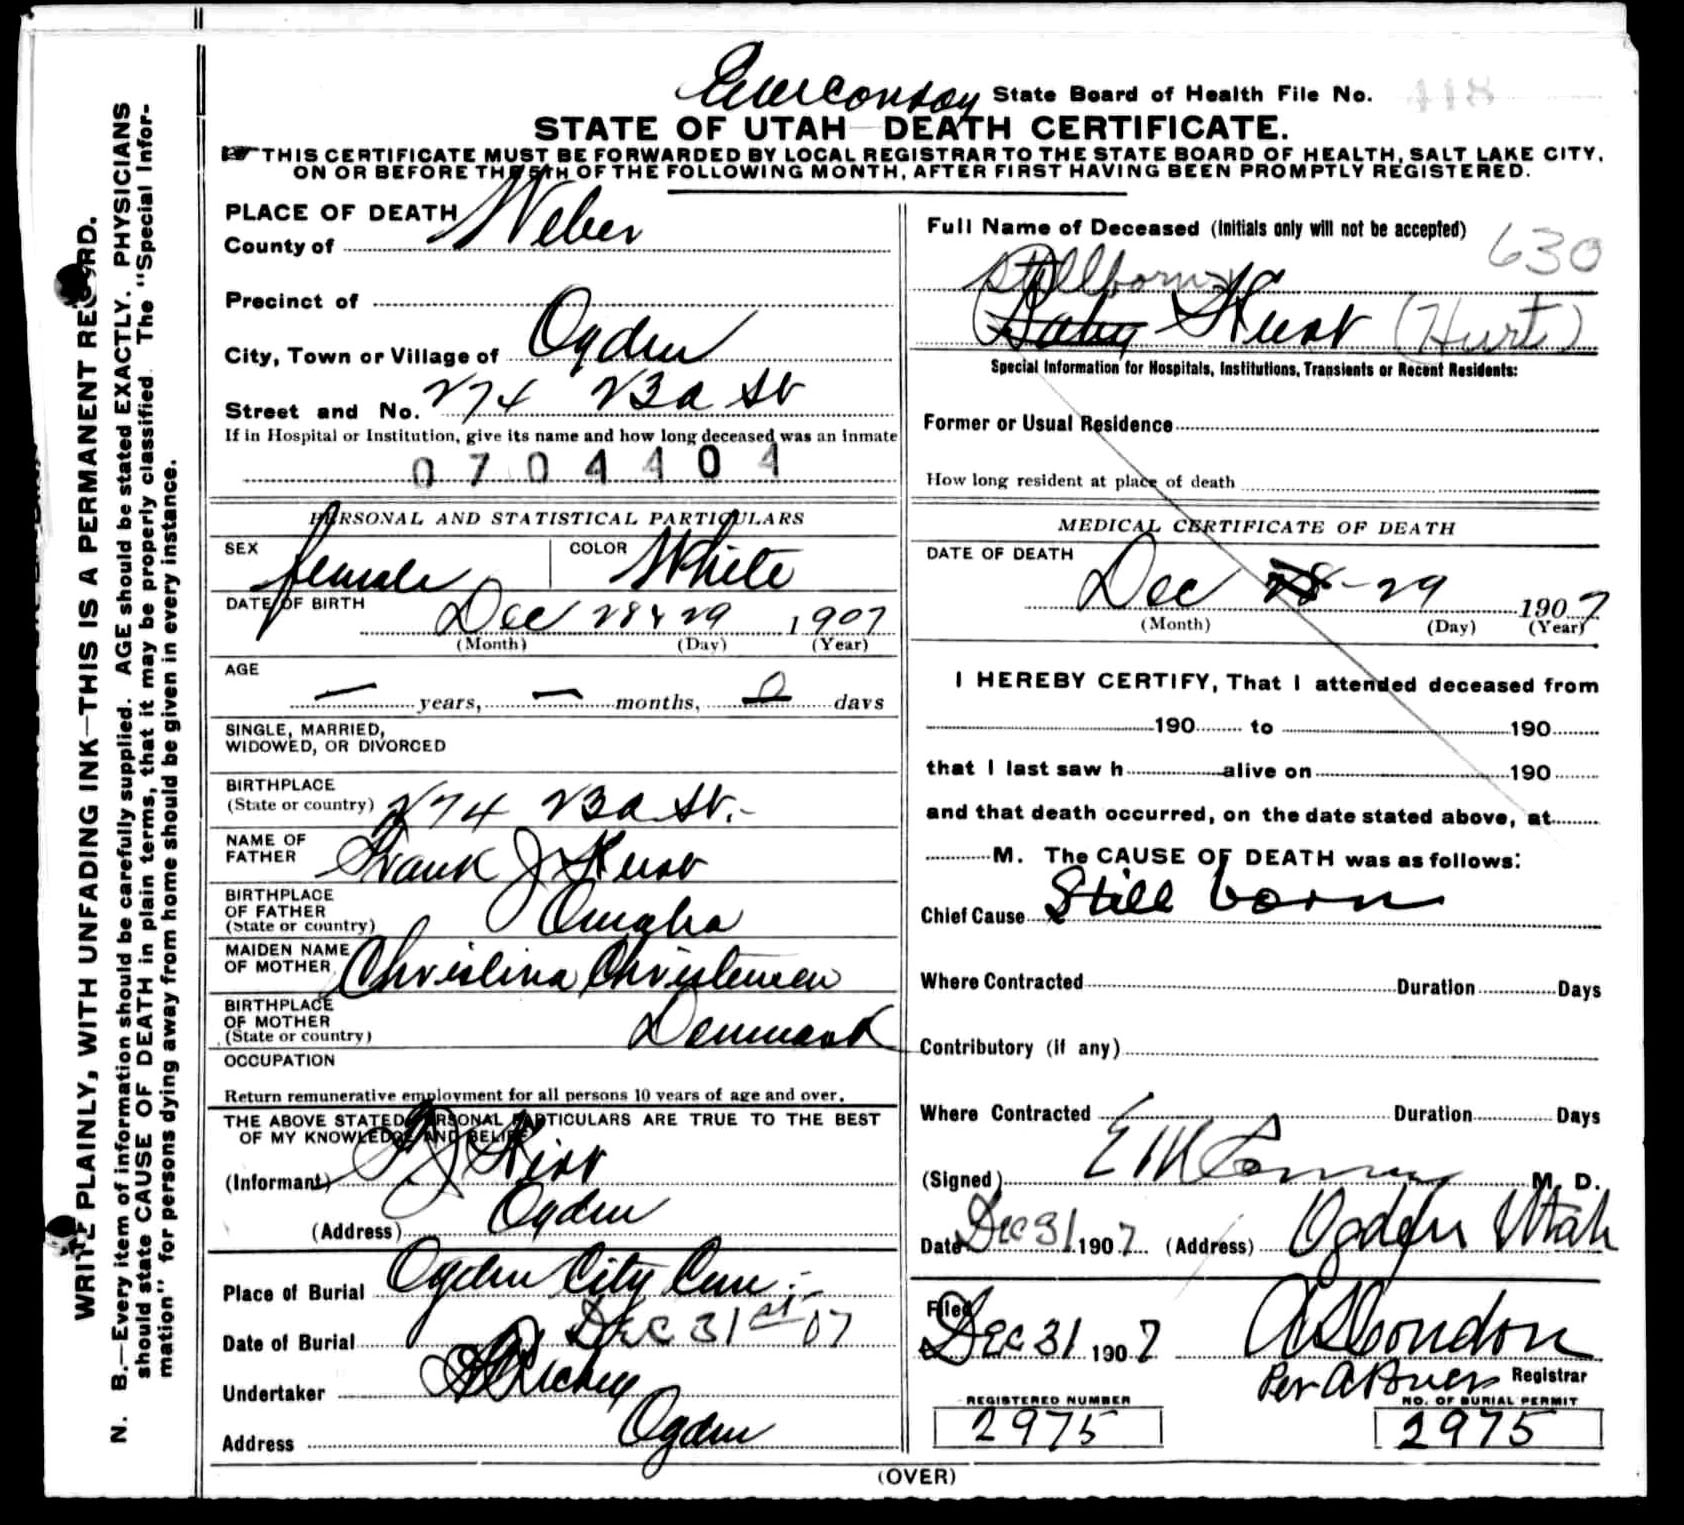 WRITE PLAINLY, WITH UNFADING INK—THIS IS A PERMANENT RECORD.
N. B.—Every item of information should be carefully supplied. AGE should be stated EXACTLY. PHYSICIANS
should state CAUSE OF DEATH in plain terms, that it may be properly classified. The "Special Infor-
mation" for persons dying away from home should be given in every instance.
State Board of Health File No. 418
STATE OF UTAH—DEATH CERTIFICATE.
THIS CERTIFICATE MUST BE FORWARDED BY LOCAL REGISTRAR TO THE STATE BOARD OF HEALTH, SALT LAKE CITY,
ON OR BEFORE THE 5TH OF THE FOLLOWING MONTH, AFTER FIRST HAVING BEEN PROMPTLY REGISTERED.
PLACE OF DEATH
County of Weber
Precinct of
City, Town or Village of Ogden
Street and No. 274 23d St
If in Hospital or Institution, give its name and how long deceased was an inmate
0704404
PERSONAL AND STATISTICAL PARTICULARS
SEX female COLOR White
DATE OF BIRTH Dec 28 & 29 1907
(Month) (Day) (Year)
AGE
— years, — months, 0 days
SINGLE, MARRIED,
WIDOWED, OR DIVORCED
BIRTHPLACE
(State or country) 274 23d St.-
NAME OF
FATHER Frank J
BIRTHPLACE
OF FATHER
(State or country) Omaha
MAIDEN NAME
OF MOTHER Christina Christensen
BIRTHPLACE
OF MOTHER
(State or country) Denmark
OCCUPATION
Return remunerative employment for all persons 10 years of age and over.
THE ABOVE STATED PERSONAL PARTICULARS ARE TRUE TO THE BEST
OF MY KNOWLEDGE AND BELIEF
(Informant) F J
(Address) Ogden
Place of Burial Ogden City Cem.-
Date of Burial Dec 31st-07
Undertaker Richey
Address Ogden
Full Name of Deceased (Initials only will not be accepted) 630
Stillborn
Baby (Hurt)
Special Information for Hospitals, Institutions, Transients or Recent Residents:
Former or Usual Residence
How long resident at place of death
MEDICAL CERTIFICATE OF DEATH
DATE OF DEATH
Dec 28-29 1907
(Month) (Day) (Year)
I HEREBY CERTIFY, That I attended deceased from
190 to 190
that I last saw h alive on 190
and that death occurred, on the date stated above, at
M. The CAUSE OF DEATH was as follows:
Chief Cause Still born
Where Contracted Duration Days
Contributory (if any)
Where Contracted Duration Days
(Signed) M. D.
Date Dec 31 1907 (Address) Ogden Utah
Filed
Dec 31 1907 Condon
Per Registrar
REGISTERED NUMBER
2975
NO. OF BURIAL PERMIT
2975
(OVER)